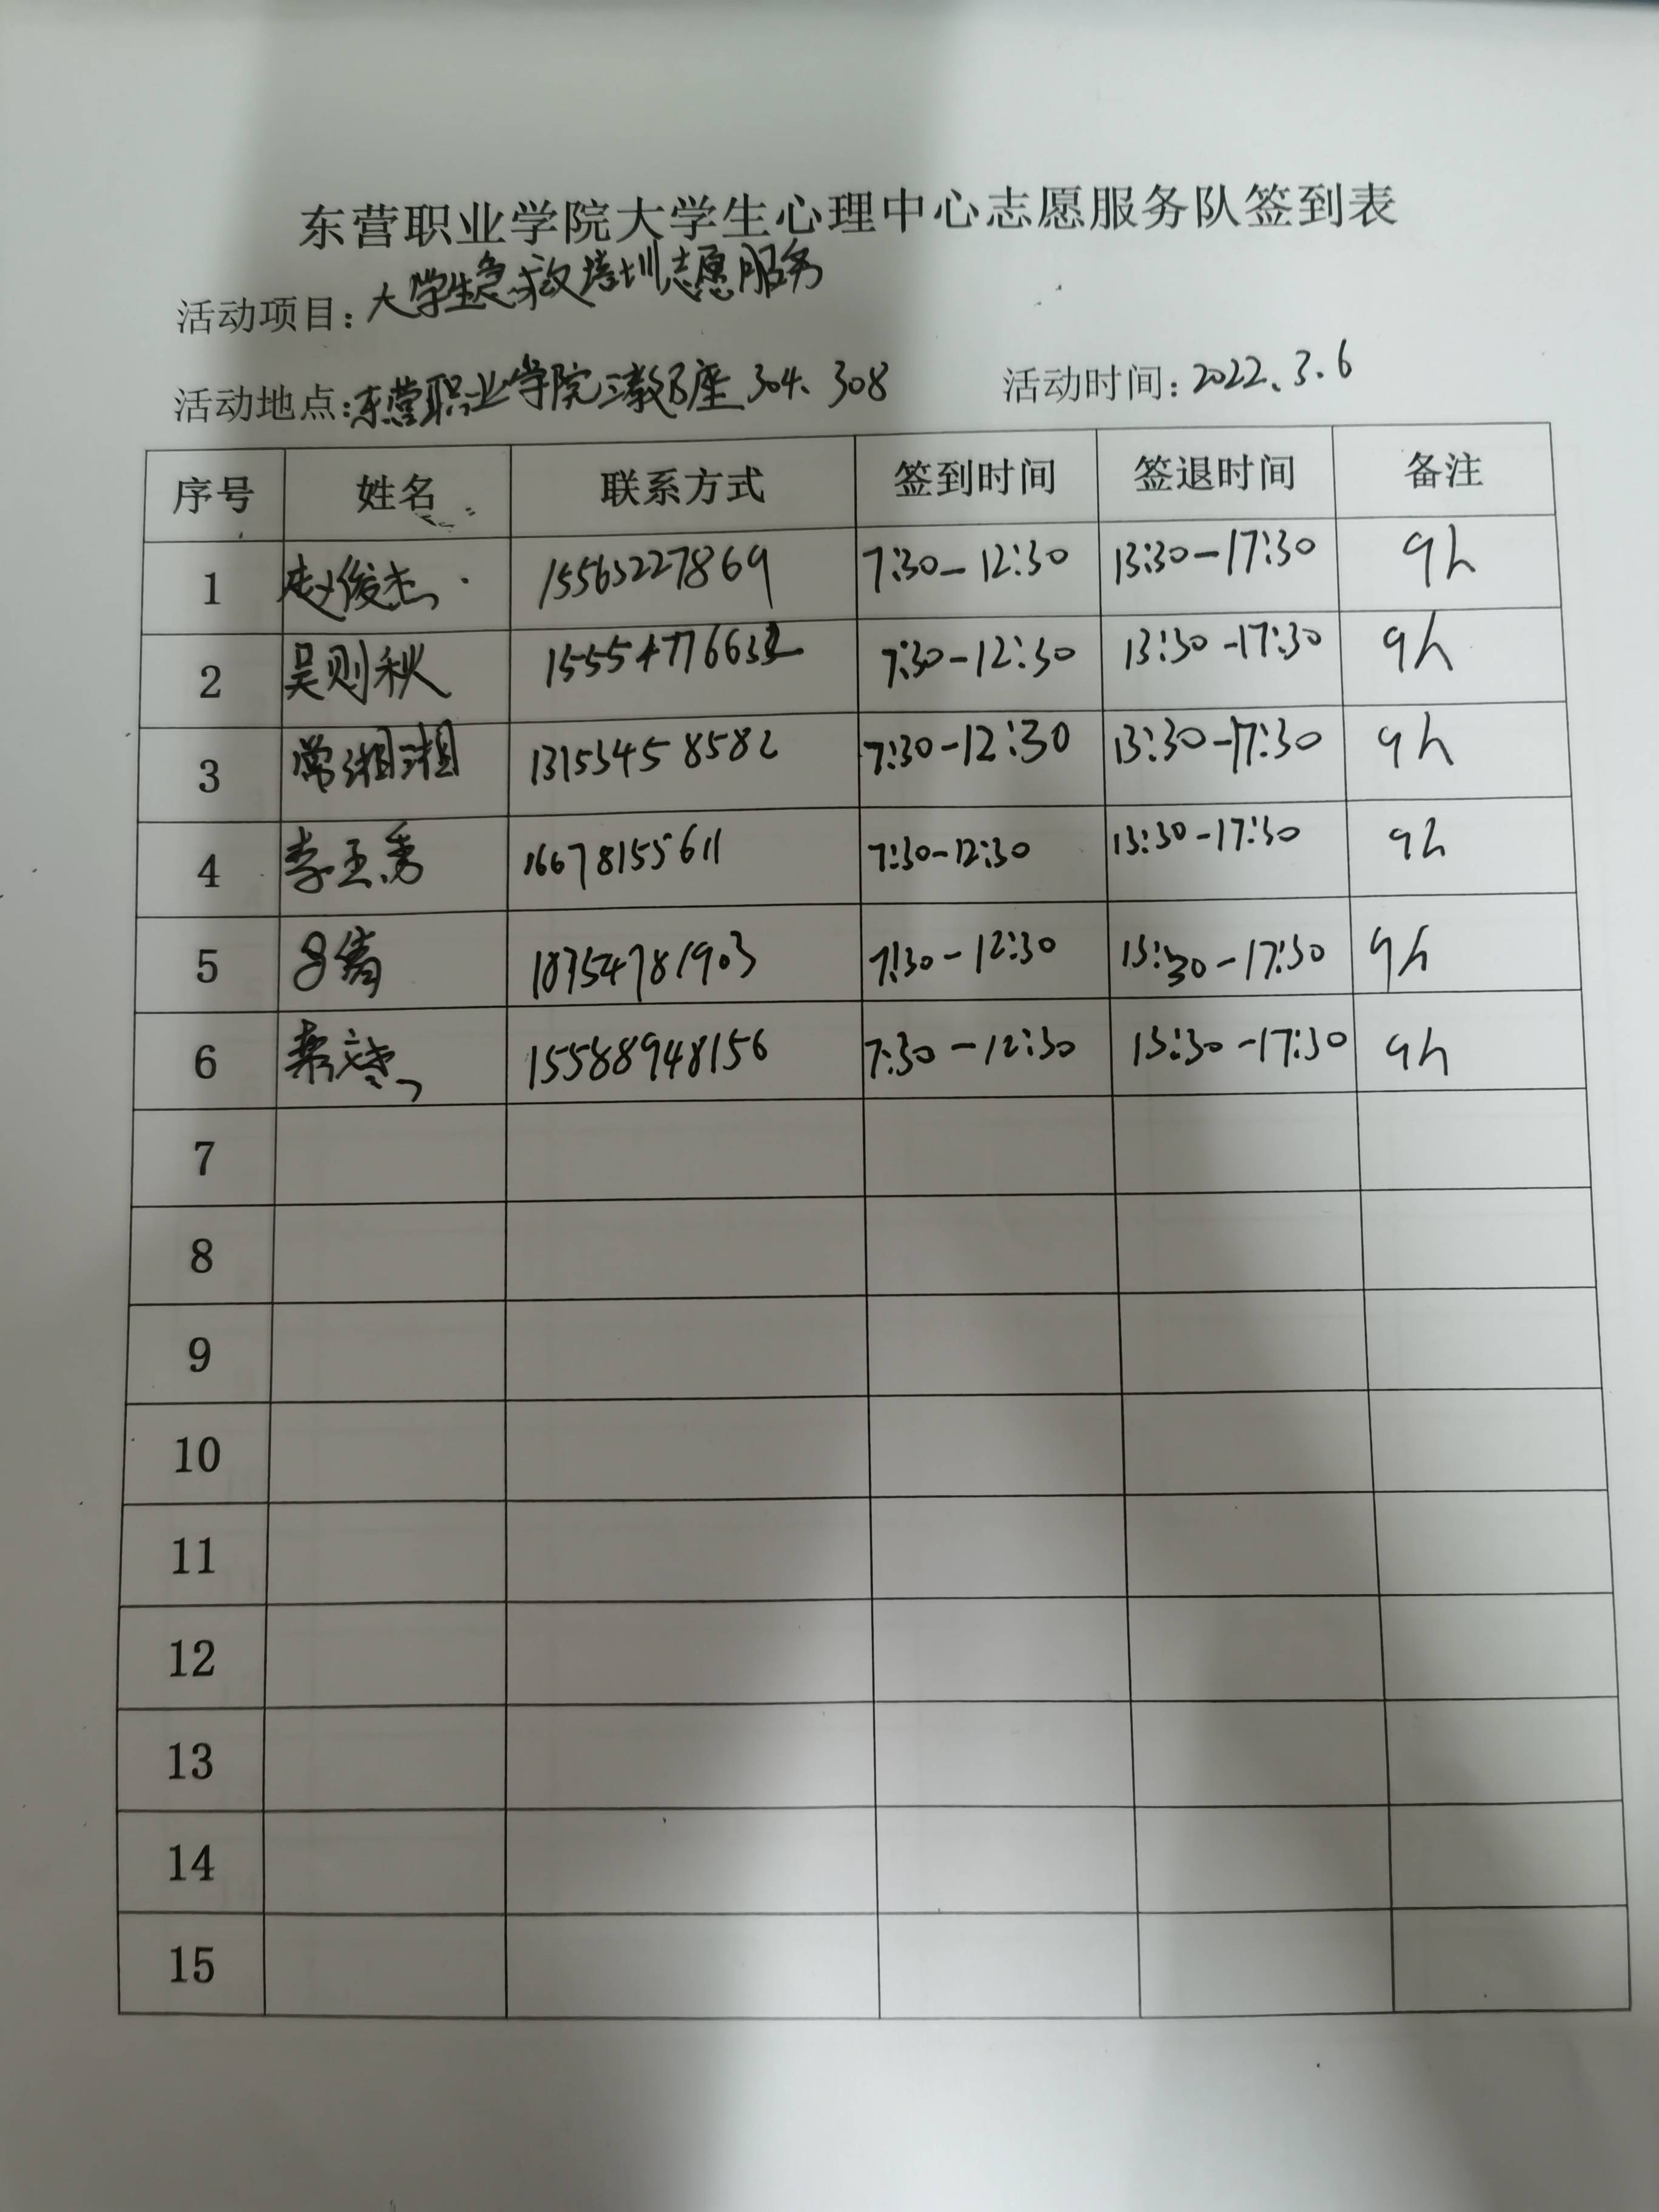 东营职业学院大学生心理中心志愿服务队签到表
活动项目：大学生急救培训志愿服务
活动地点：东营职业学院三教B座 304、308 活动时间：2022.3.6
序号 姓名 联系方式 签到时间 签退时间 备注
1 赵俊杰 15563227869 7:30-12:30 13:30-17:30 9h
2 吴则秋 7:30-12:30 13:30-17:30 9h
3 常湘湘 13153458582 7:30-12:30 13:30-17:30 9h
4 李玉秀 16678155611 7:30-12:30 13:30-17:30 9h
5 吕倩 18754781903 7:30-12:30 13:30-17:30 9h
6 15588948156 7:30-12:30 13:30-17:30 9h
7
8
9
10
11
12
13
14
15